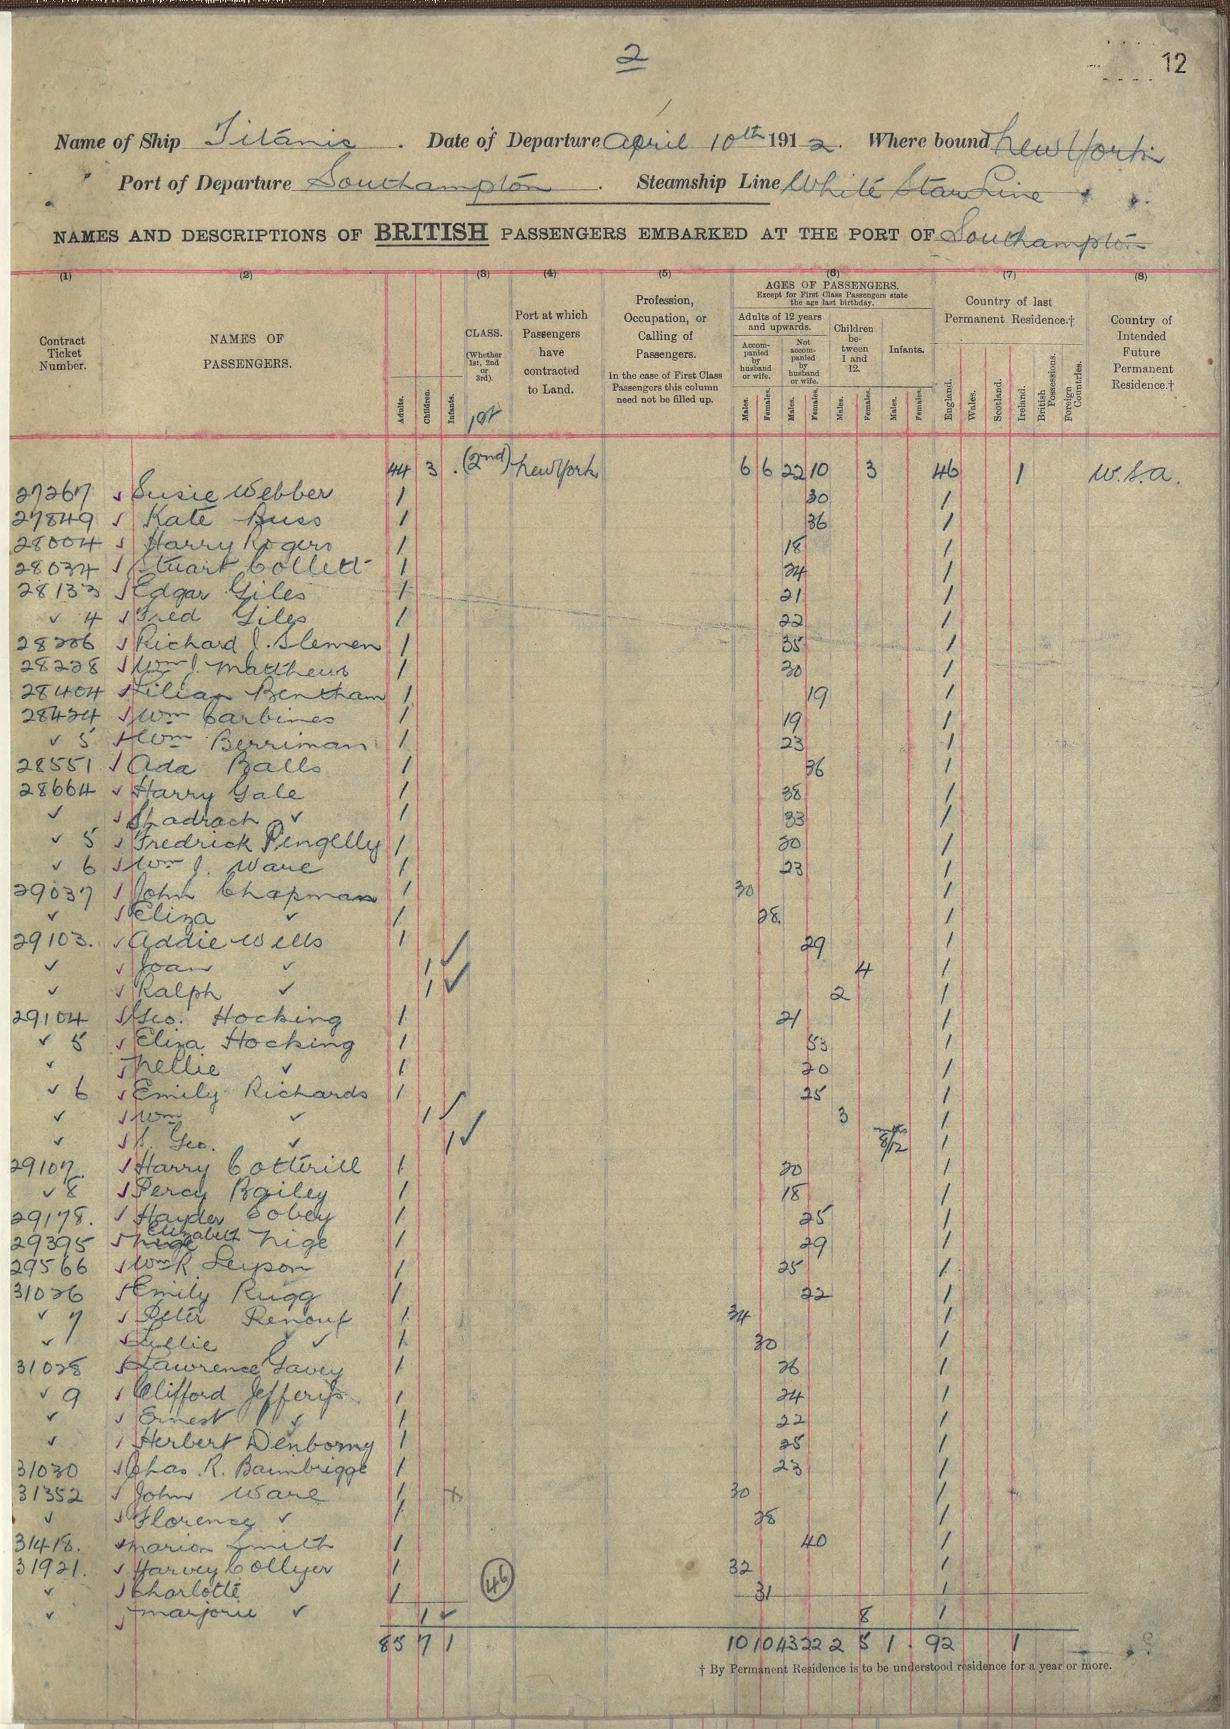 2
12
Name of Ship Titanic . Date of Departure April 10th 1912. Where bound New York
Port of Departure Southampton . Steamship Line White Star Line
NAMES AND DESCRIPTIONS OF BRITISH PASSENGERS EMBARKED AT THE PORT OF Southampton
(1) (2) (3) (4) (5) (6) (7) (8)
Contract Ticket Number.
NAMES OF PASSENGERS.
Adults. Children. Infants.
CLASS. (Whether 1st, 2nd or 3rd).
Port at which Passengers have contracted to Land.
Profession, Occupation, or Calling of Passengers.
In the case of First Class Passengers this column need not be filled up.
AGES OF PASSENGERS.
Except for First Class Passengers state the age last birthday.
Adults of 12 years and upwards.
Accompanied by husband or wife.
Not accompanied by husband or wife.
Children between 1 and 12.
Infants.
Males. Females. Males. Females. Males. Females. Males. Females.
Country of last Permanent Residence.†
England. Wales. Scotland. Ireland. British Possessions. Foreign Countries.
Country of Intended Future Permanent Residence.†
44 3 . (2nd) New York 6 6 22 10 3 46 1 U.S.A.
27267 Susie Webber 1 30 1
27849 Kate Buss 1 36 1
28004 Harry Rogers 1 18 1
28034 Stuart Collett 1 24 1
28133 Edgar Giles 1 21 1
✓ 4 Fred Giles 1 22 1
28206 Richard J. Slemen 1 35 1
28228 Wm J. Matthews 1 30 1
28404 Lilian Bentham 1 19 1
28424 Wm Carbines 1 19 1
✓ 5 Wm Berriman 1 23 1
28551 Ada Balls 1 36 1
28664 Harry Gale 1 38 1
✓ Shadrach ✓ 1 33 1
✓ 5 Fredrick Pengelly 1 20 1
✓ 6 Wm J. Ware 1 23 1
29037 John Chapman 1 30 1
✓ Eliza ✓ 1 28 1
29103. Addie Wells 1 ✓ 29 1
✓ Joan ✓ 1 4 1
✓ Ralph ✓ 1 ✓ 2 1
29104 Geo. Hocking 1 21 1
✓ 5 Eliza Hocking 1 53 1
✓ Nellie ✓ 1 20 1
✓ 6 Emily Richards 1 25 1
✓ Wm ✓ 1 ✓ 3 1
✓ S. Geo. ✓ 1 ✓ mths 8/12 1
29107. Harry Cotterill 1 20 1
✓ 8 Percy Bailey 1 18 1
29178. Hayden Cobey 1 25 1
29395 Elizabeth Nige 1 29 1
29566 Wm R Leyson 1 25 1
31026 Emily Rugg 1 22 1
✓ 7 Peter Renouf 1 34 1
✓ Lillie ✓ 1 30 1
31028 Lawrence Gavey 1 26 1
✓ 9 Clifford Jefferys 1 24 1
✓ Ernest ✓ 1 22 1
✓ Herbert Denbomy 1 25 1
31030 Chas. R. Bainbrigge 1 23 1
31352 John Ware 1 x 30 1
✓ Florence ✓ 1 28 1
31418. Marion Smith 1 40 1
31921. Harvey Collyer 1 32 1
✓ Charlotte ✓ 1 (46) 31 1
✓ Marjorie ✓ 1 ✓ 8 1
85 7 1 10 10 43 22 2 5 1 . 92 1
† By Permanent Residence is to be understood residence for a year or more.